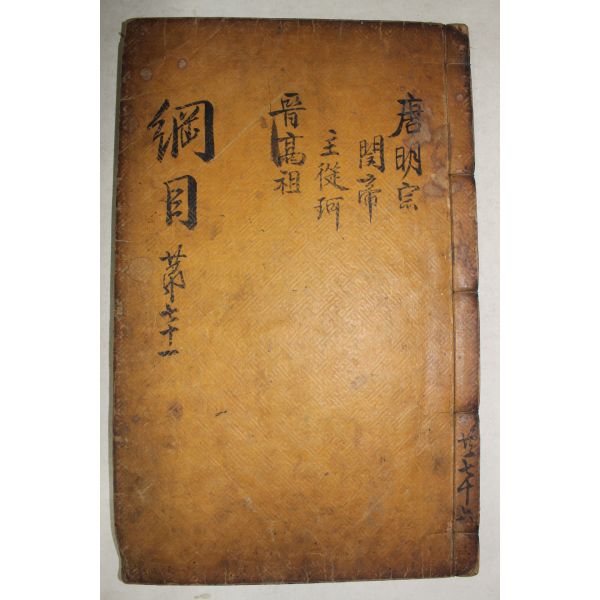 唐明宗
閔帝
主從珂
晉高祖
綱目
第七十一
共七十六